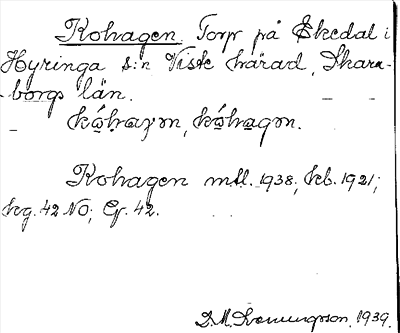 Kohagen. Torp på Ekedal i
Hyringa s:n Viste härad, Skara-
borgs län. - -
- kó̤haɣən, kó̤hagən.
Kohagen mtl. 1938; kb. 1921;
kg. 42 NO; Gf. 42.
D. M. 1939.